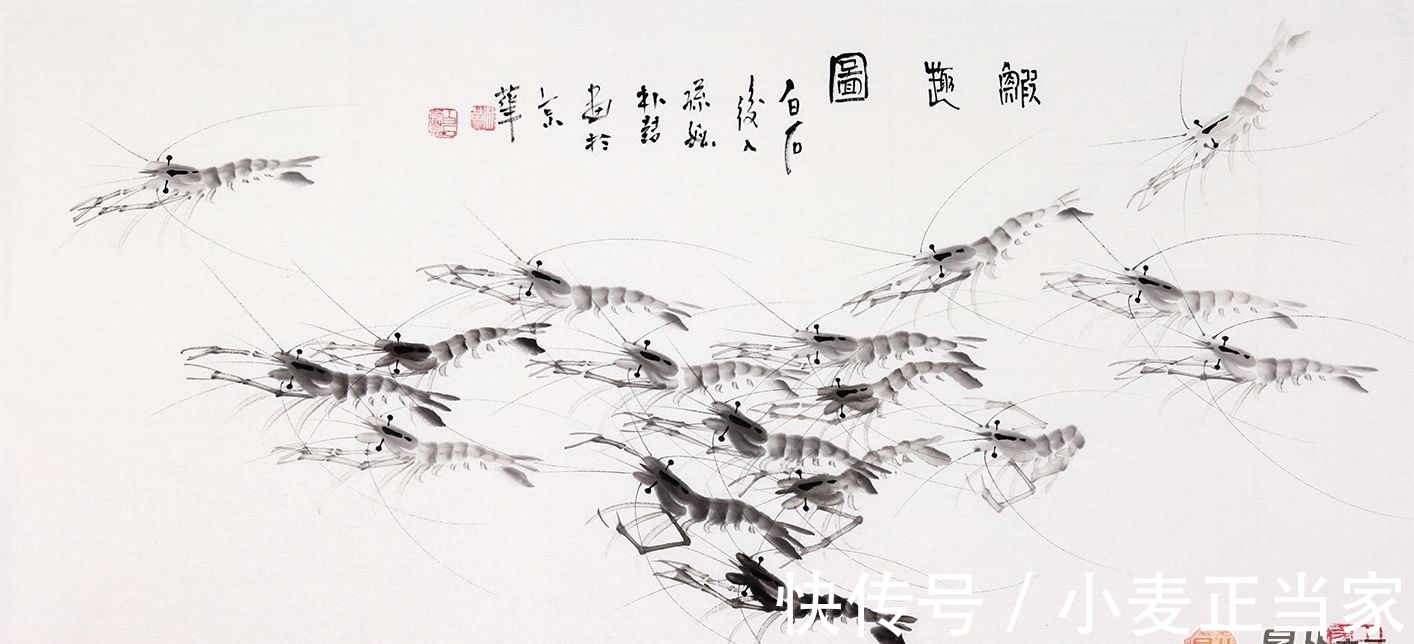 鰕趣圖
白石
後人
孫媳
畫於
京
華
快传号 / 小麦正当家